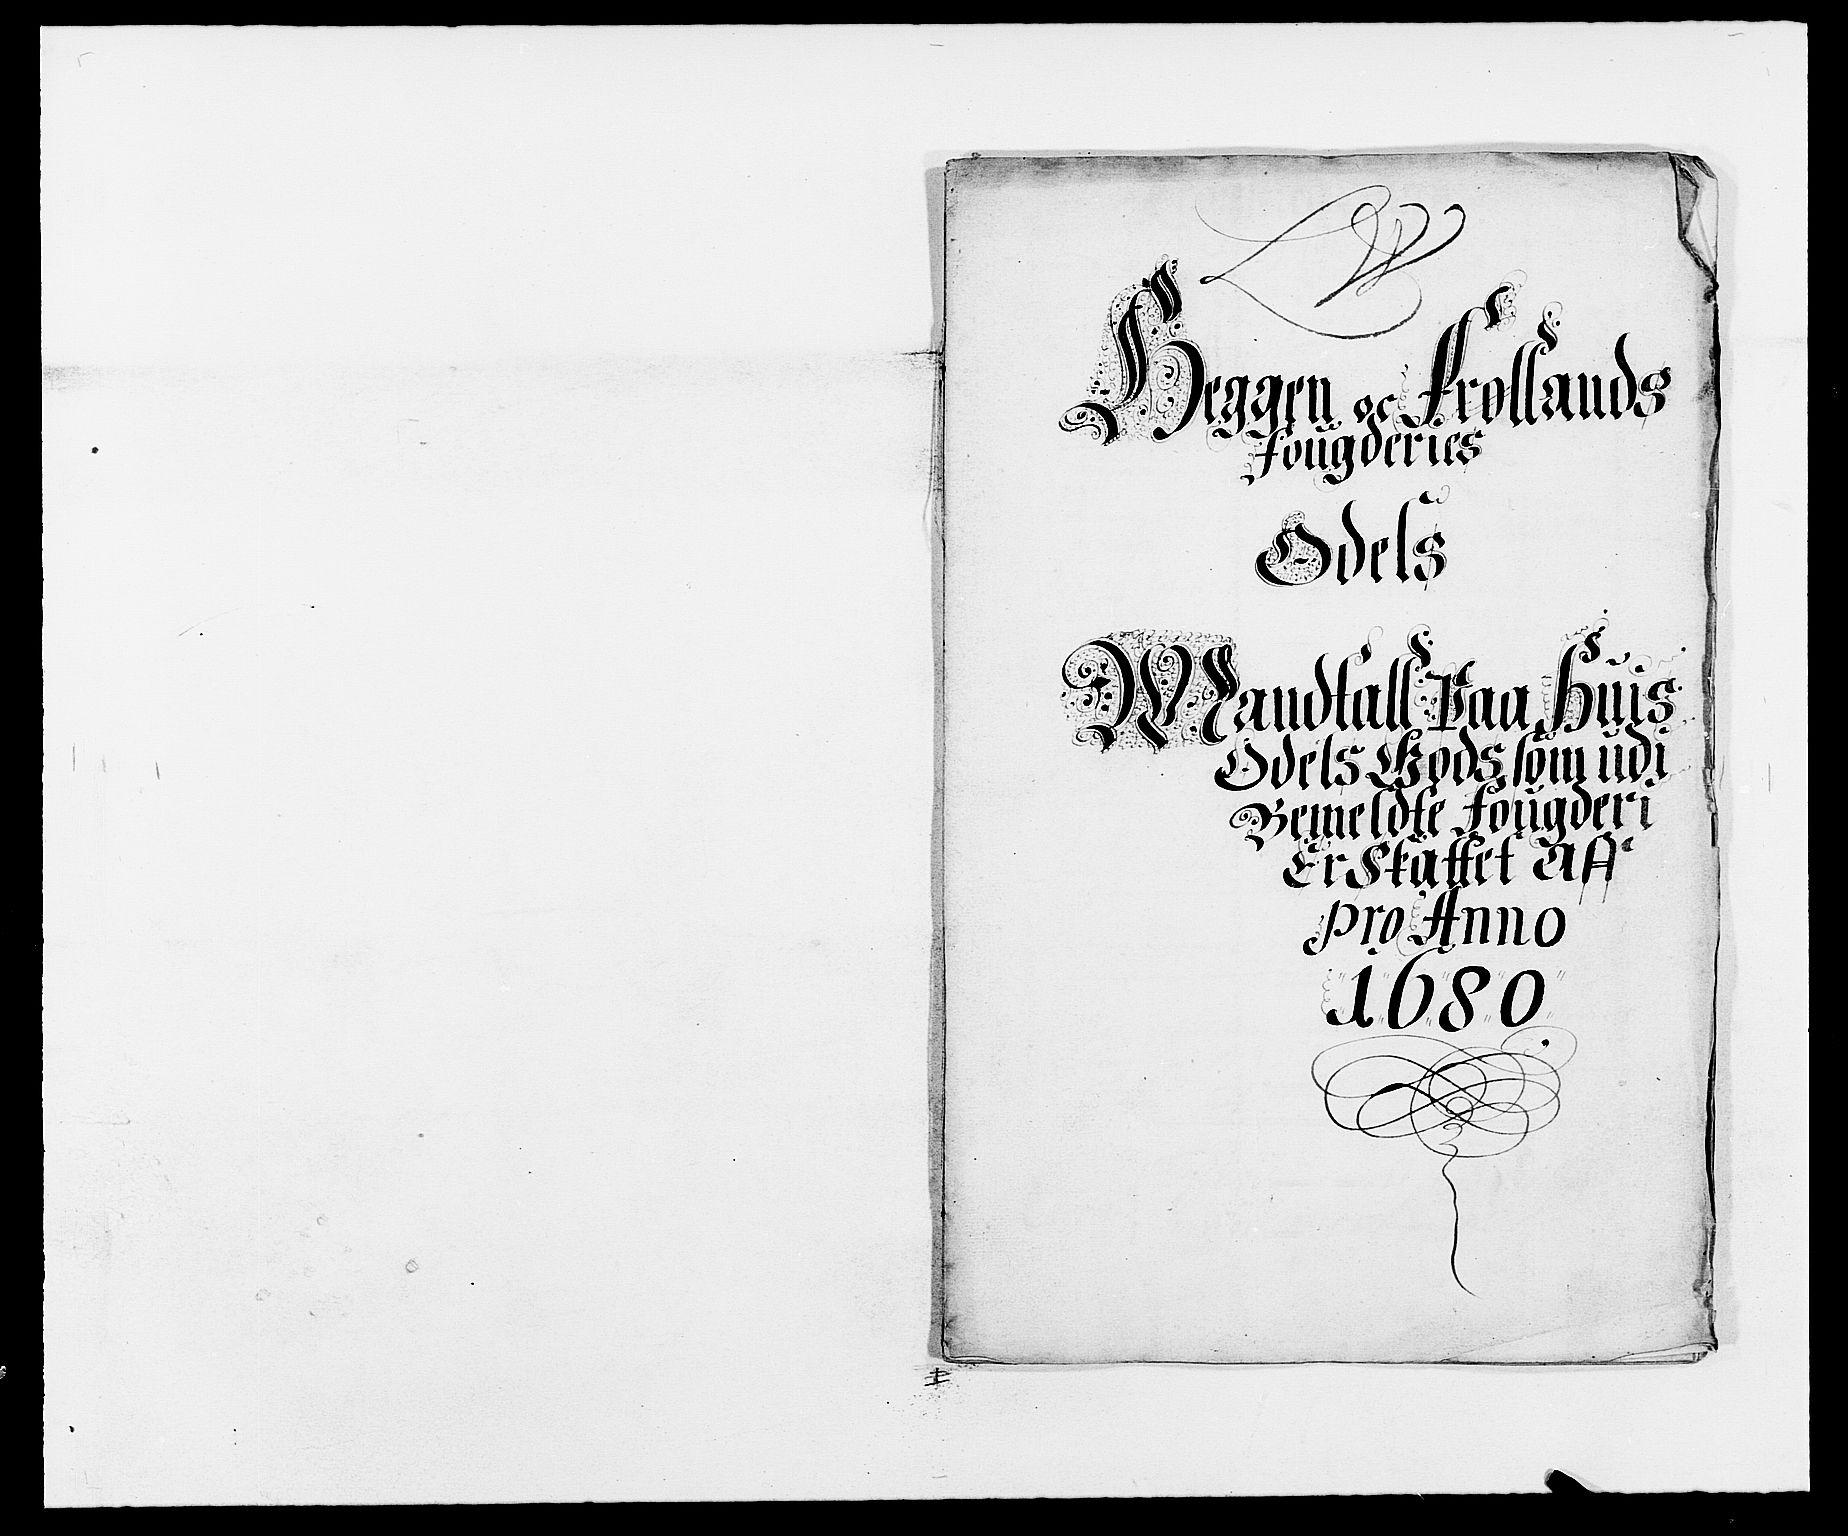 Heggen oc Frøllands
fougderies
Odels
Mandtall Paa huis
Odels Gods som udi
Bemeldte fougderi
Er Skattet Aff
pro Anno
1680